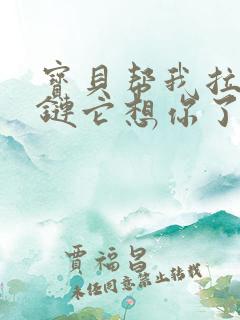 寶貝幫我拉
鏈它想你了
賈福昌
未任同意禁止转载